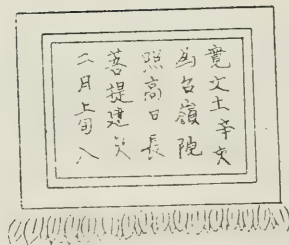 寛文土辛亥
為台嶺院
照高日長
菩提建焉
二月上旬八